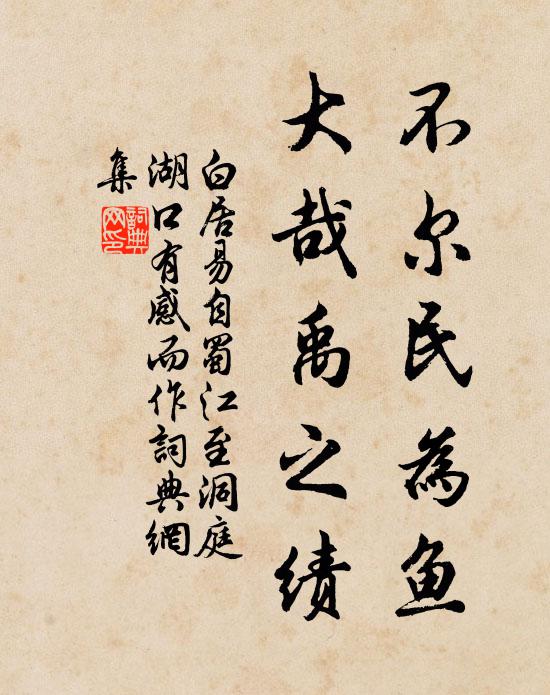 不尔民為鱼
大哉禹之绩
白居易自蜀江至洞庭
湖口有感而作詞典網
集
詞典
网印